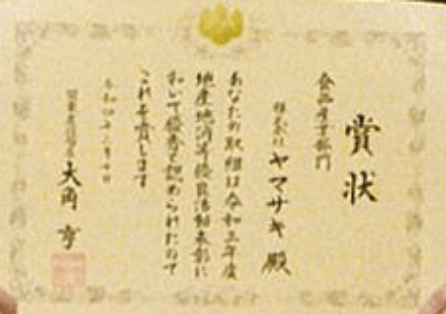 賞状
食品産業部門
株式会社 ヤマサキ 殿
あなたの取組は令和三年度
地産地消等優良活動表彰に
おいて優秀と認められたので
これを賞します
大角 亨